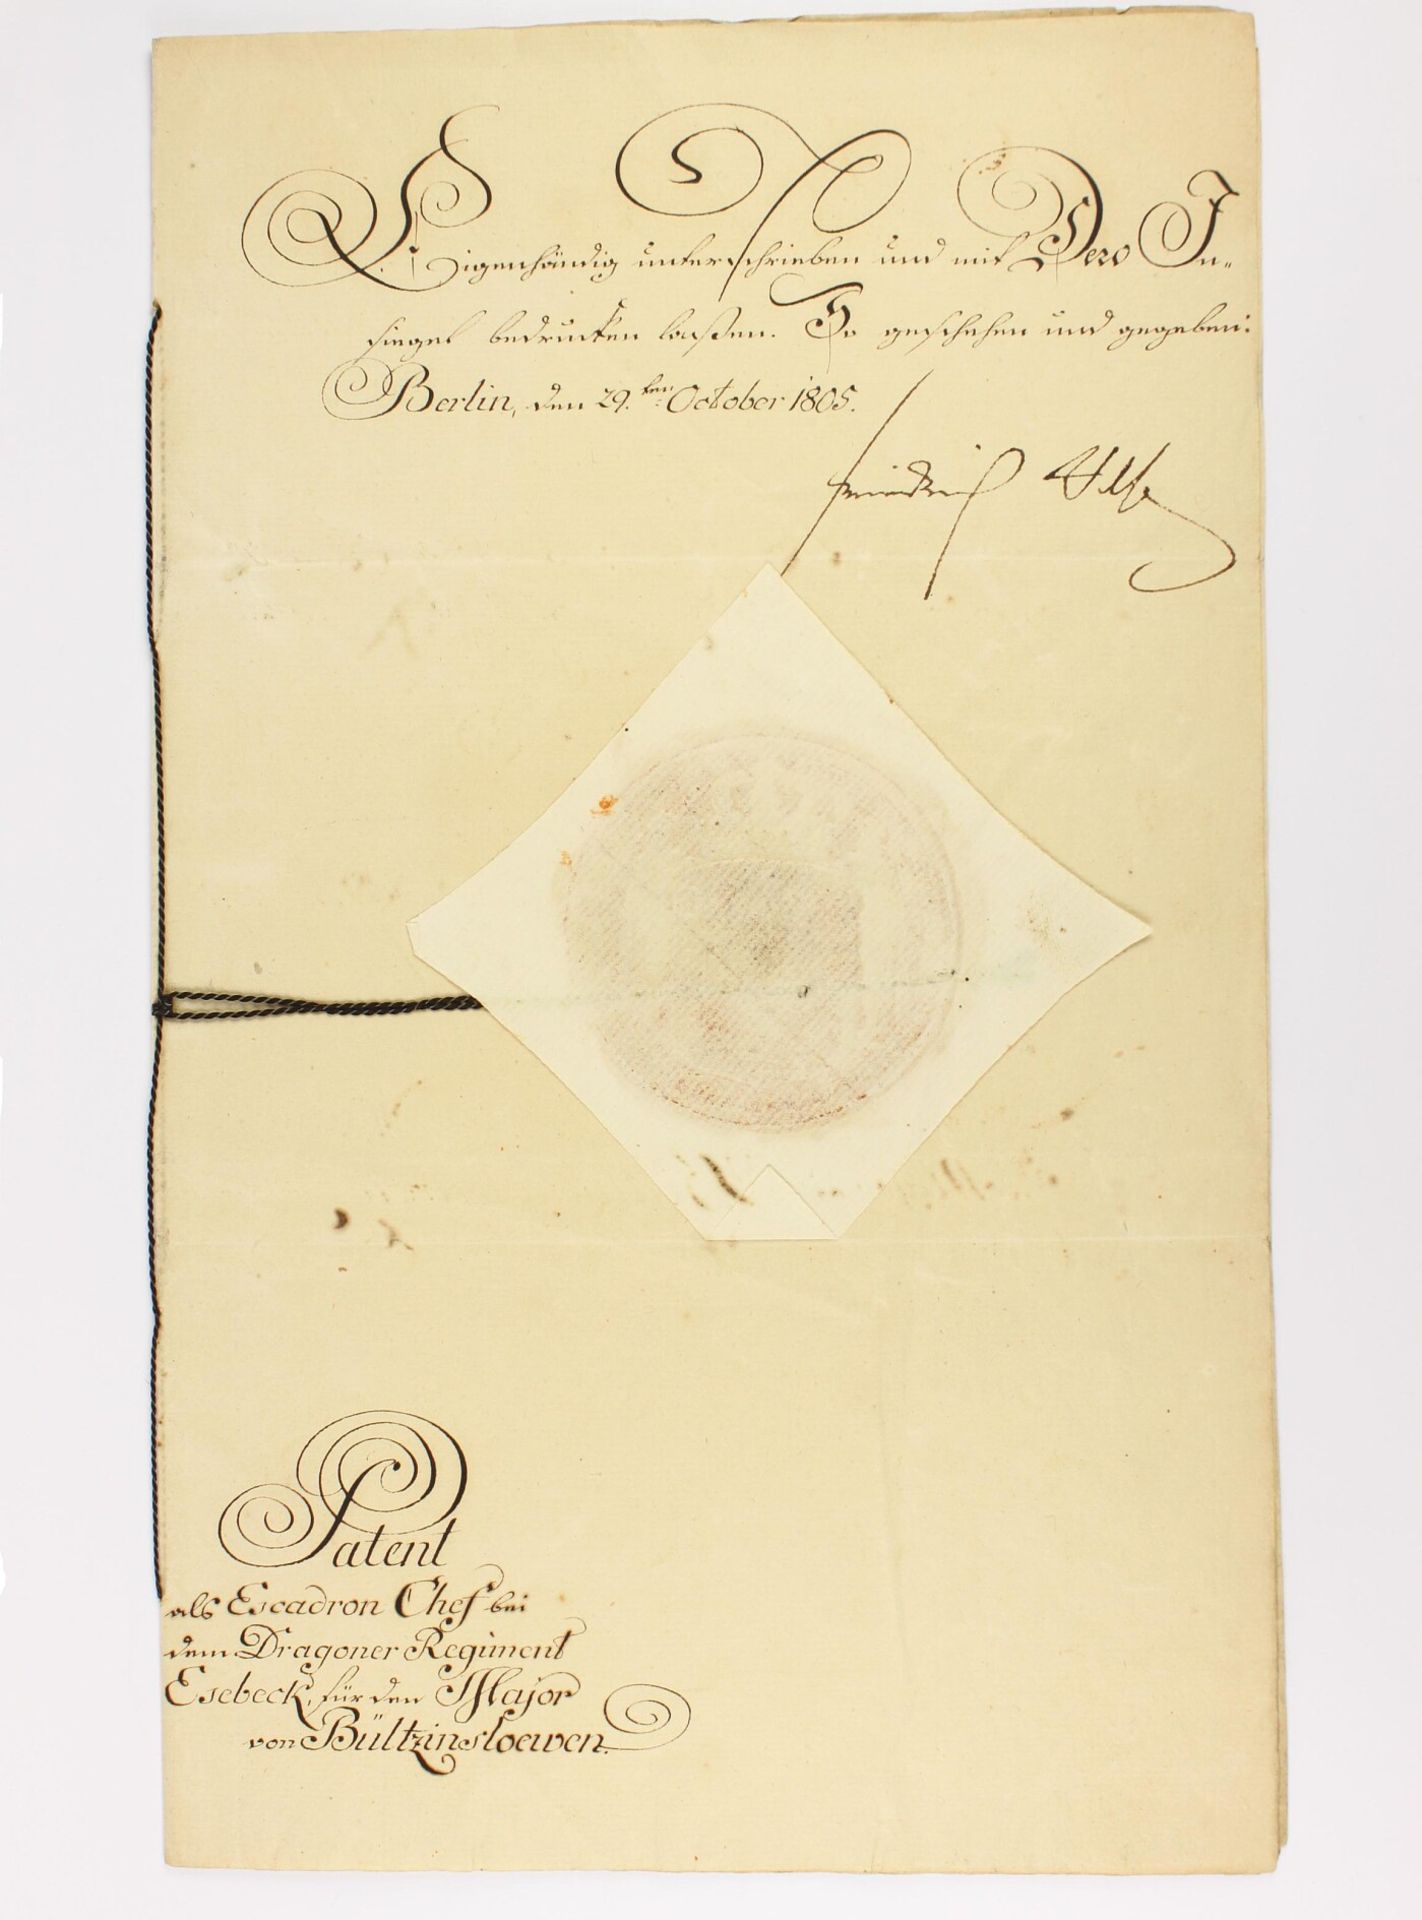 Eigenhändig unterschrieben und mit Dero In-
siegel bedrucken laßen. So geschehen und gegeben:
Berlin, den 29.ten October 1805.
Friedrich Wilh
Patent
als Escadron Chef bei
dem Dragoner Regiment
Esebeck, für den Major
von Bültzinsloewen.